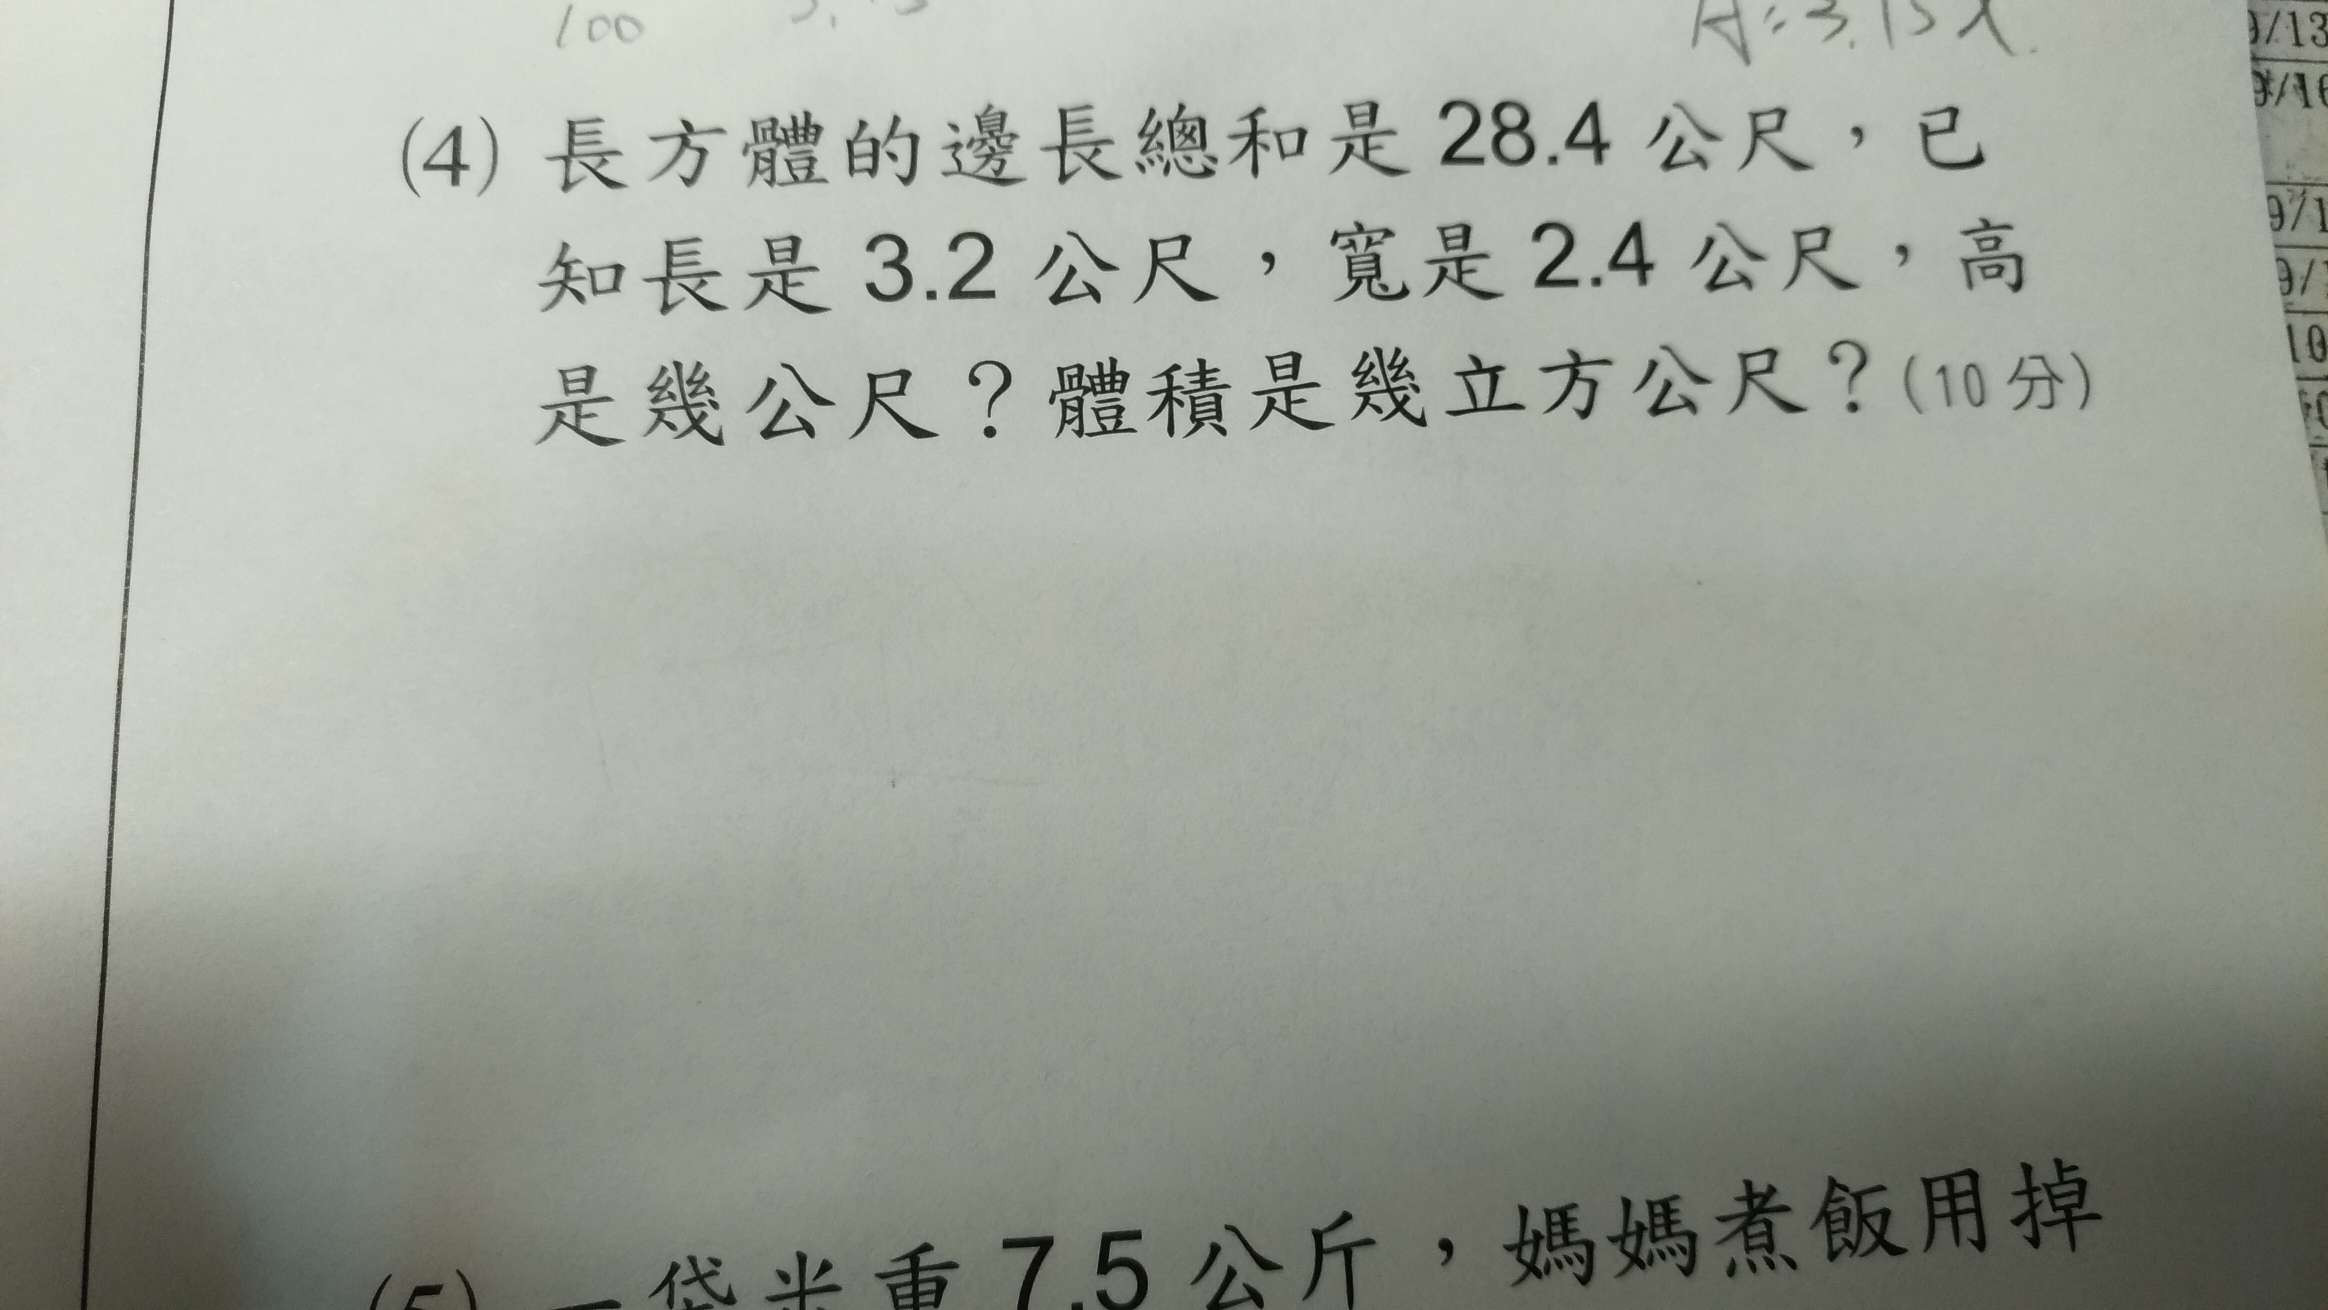 100
A:3.15人.
(4) 長方體的邊長總和是 28.4 公尺，已
知長是 3.2 公尺，寬是 2.4 公尺，高
是幾公尺？體積是幾立方公尺？(10分)
(5) 一袋米重 7.5 公斤，媽媽煮飯用掉
9/13
9/16
9/1
9/
10